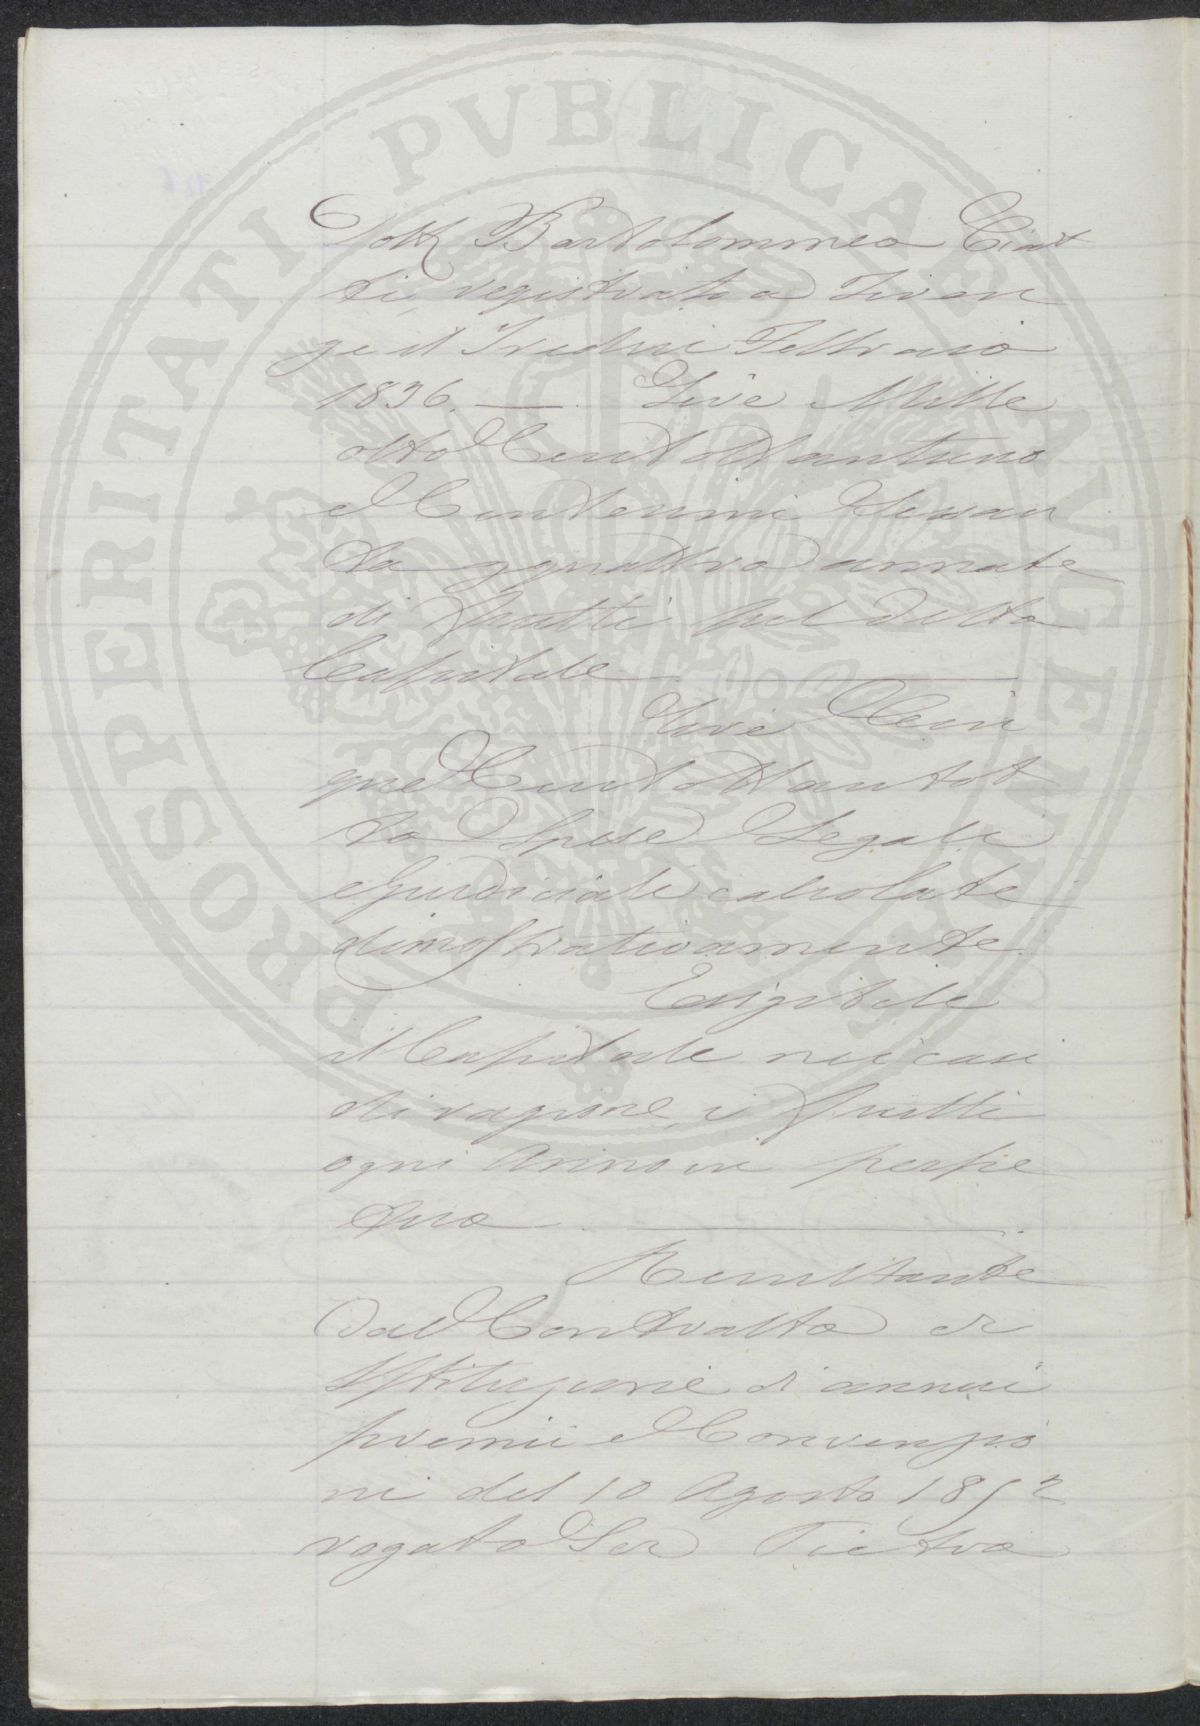 PROSPERITATI PVBLICAE AVGENDAE
Dott Bartolommeo Ciat
ti, registrato a Firen
ze il Tredici Febbraio
1836. — Lire Mille
otto Cent Ottantuno
e Centesimi Sessan
ta quattro annate
di frutti sul detto
Capitale
Lire Cin
que Cent Ottantot
to Spese Legali
e Giudiciali calcolate
dimostrativamente
Esigibile
il Capitale nei casi
di ragione, i frutti
ogni Anno in perpe
tuo
Resultante
dal Contratto di
Istituzione di annui
premii e Convenzio
ni del 10 Agosto 1852
rogato Ser Pietro